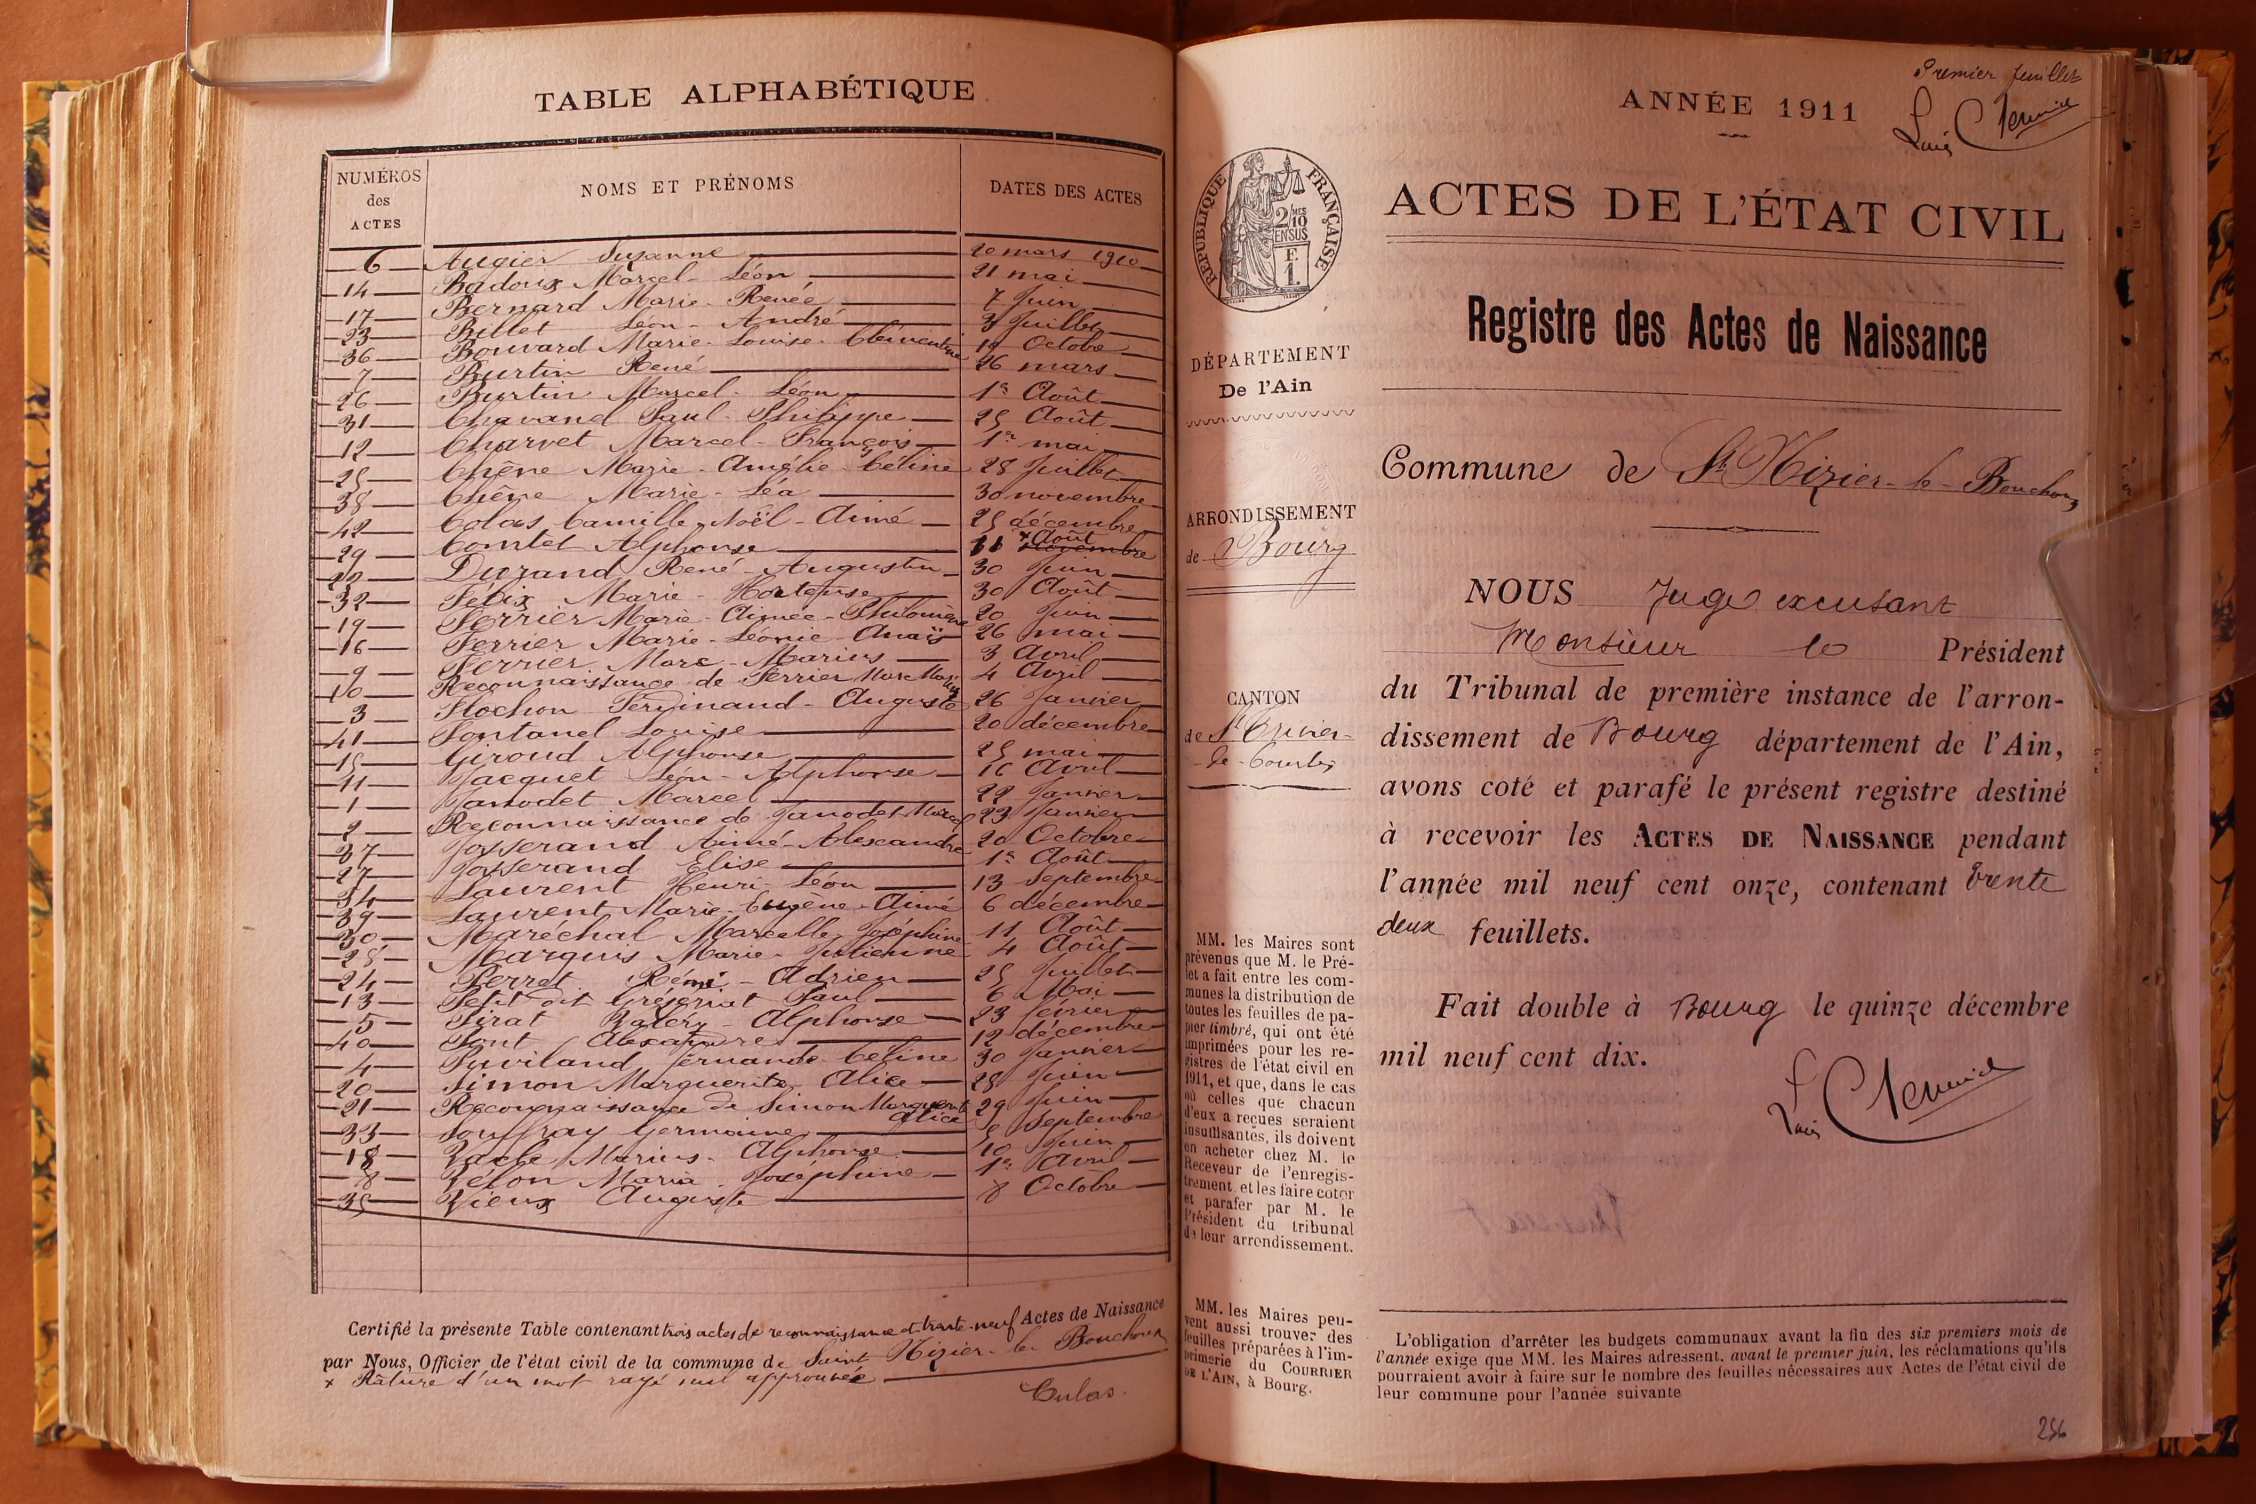 TABLE ALPHABÉTIQUE
NUMÉROS des ACTES NOMS ET PRÉNOMS DATES DES ACTES
6 Augier Suzanne 20 mars 1910
14 Badoux Marcel-Léon 21 mai
17 Bernard Marie-Renée 7 Juin
23 Billet Léon-André 3 Juillet
36 Bouvard Marie-Louise-Clémentine Octobre
7 Burtin René 26 mars
26 Burtin Marcel-Léon 1er Août
31 Chavand Paul-Philippe 25 Août
12 Charvet Marcel-François 1er mai
25 Chêne Marie-Amélie-Céline 28 Juillet
38 Chêne Marie-Léa 30 novembre
42 Colas Camille-Noël-Aimé 25 décembre
29 Comtet Alphonse 11 x Août novembre
22 Durand René-Augustin 30 Juin
32 Félix Marie-Hortense 30 Août
19 Ferrier Marie-Aimée-Philomène 20 Juin
16 Ferrier Marie-Léonie-Anaïs 26 mai
9 Ferrier Marc-Marius 3 Avril
10 Reconnaissance de Ferrier Marc Marius 4 Avril
3 Flochon Ferdinand-Auguste 26 Janvier
41 Fontanel Louise 20 décembre
15 Giroud Alphonse 25 mai
11 Jacquet Léon-Alphonse 16 Avril
1 Janodet Marcel 22 Janvier
2 Reconnaissance de Janodet Marcel 23 Janvier
37 Josserand Aimé-Alexandre 20 Octobre
27 Josserand Elise 1er Août
34 Laurent Henri-Léon 13 Septembre
39 Laurent Marie-Eugène-Aimé 6 décembre
30 Maréchal Marcelle Joséphine 11 Août
28 Marquis Marie-Julienne 4 Août
24 Perret Rémi-Adrien 25 Juillet
13 Petit dit Gréfériat Paul 6 Mai
5 Pirat Valéry-Alphonse 23 février
40 Pont Alexandre 12 décembre
4 Puvilland Fernande-Céline 30 Janvier
20 Simon Marguerite Alice 28 Juin
21 Reconnaissance de Simon Marguerite Alice 29 Juin
33 Souffray Germaine Septembre
18 Vacle Marius-Alphonse 10 Juin
8 Vélon Maria-Joséphine 1er Avril
35 Vieux Auguste 8 Octobre
Certifié la présente Table contenant trois actes de reconnaissance et trente-neuf Actes de Naissance
par Nous, Officier de l'état civil de la commune de Saint Nizier-le-Bouchoux
x Râture d'un mot rayé nul approuvée
Culas.
Premier feuillet
ANNÉE 1911
ACTES DE L'ÉTAT CIVIL
RÉPUBLIQUE FRANÇAISE
2/10
MES
EN SUS
F.
1.
Registre des Actes de Naissance
DÉPARTEMENT
De l'Ain
Commune de St Nizier-le-Bouchoux
ARRONDISSEMENT
de Bourg
CANTON
de St Trivier-
de-Courtes
MM. les Maires sont
prévenus que M. le Pré-
fet a fait entre les com-
munes la distribution de
toutes les feuilles de pa-
pier timbré, qui ont été
imprimées pour les re-
gistres de l'état civil en
1911, et que, dans le cas
où celles que chacun
d'eux a reçues seraient
insuffisantes, ils doivent
en acheter chez M. le
Receveur de l'enregis-
trement, et les faire coter
et parafer par M. le
Président du tribunal
de leur arrondissement.
MM. les Maires peu-
vent aussi trouver des
feuilles préparées à l'im-
primerie du COURRIER
DE L'AIN, à Bourg.
NOUS Juge excusant
Monsieur le Président
du Tribunal de première instance de l'arron-
dissement de Bourg département de l'Ain,
avons coté et parafé le présent registre destiné
à recevoir les ACTES DE NAISSANCE pendant
l'année mil neuf cent onze, contenant trente
deux feuillets.
Fait double à Bourg le quinze décembre
mil neuf cent dix.
L'obligation d'arrêter les budgets communaux avant la fin des six premiers mois de
l'année exige que MM. les Maires adressent, avant le premier juin, les réclamations qu'ils
pourraient avoir à faire sur le nombre des feuilles nécessaires aux Actes de l'état civil de
leur commune pour l'année suivante
256